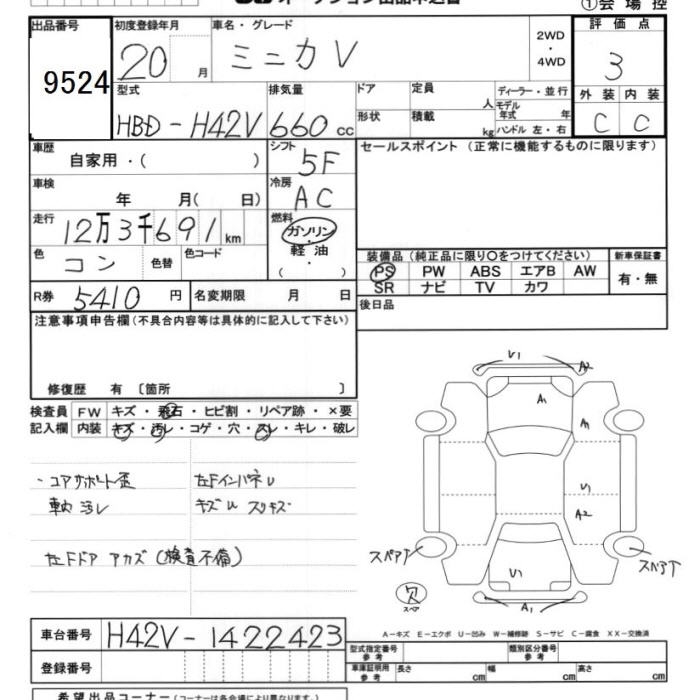 ①会場控
出品番号 9524
初度登録年月 20 月
車名・グレード ミニカ V
2WD・4WD
評価点 3
型式 HBD-H42V
排気量 660 cc
ドア
形状
定員 人
積載 kg
ディーラー・並行
モデル年式 年
ハンドル 左・右
外装 C
内装 C
車歴 自家用・( )
シフト 5F
車検 年 月( 日)
冷房 AC
走行 12万3千691 km
燃料 ガソリン・軽油 ( )
色 コン
色替
色コード
R券 5410 円
名変期限 月 日
セールスポイント (正常に機能するものに限ります)
装備品 (純正品に限り○をつけてください)
PS PW ABS エアB AW
SR ナビ TV カワ
新車保証書
有・無
後日品
注意事項申告欄 (不具合内容等は具体的に記入して下さい)
修復歴 有 〔箇所 〕
検査員記入欄
FW キズ・飛石・ヒビ割・リペア跡・×要
内装 キズ・汚レ・コゲ・穴・スレ・キレ・破レ
・コアサポート歪
車内汚レ
左FインパネU
キズU スリキズ
左Fドア アカズ (検査不備)
U1
A2
A1
A1
A1
U1
A2
U1
A1
スペアT
スペアT
欠
スペア
A-キズ E-エクボ U-凹み W-補修跡 S-サビ C-腐食 XX-交換済
車台番号 H42V-1422423
登録番号
型式指定番号 参考
類別区分番号 参考
車庫証明用 参考
長さ cm
幅 cm
高さ cm
希望出品コーナー (コーナーは各会場により異なります)